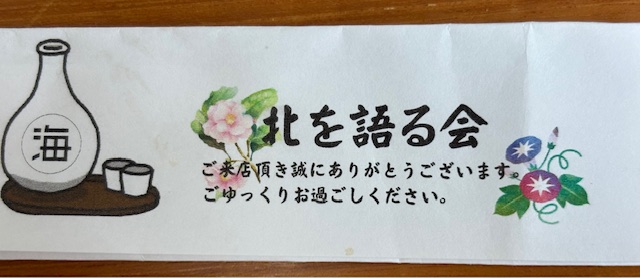 海
北を語る会
ご来店頂き誠にありがとうございます。
ごゆっくりお過ごしください。